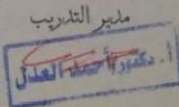 مدير التدريب
أ. دكتور/أحمد العدل